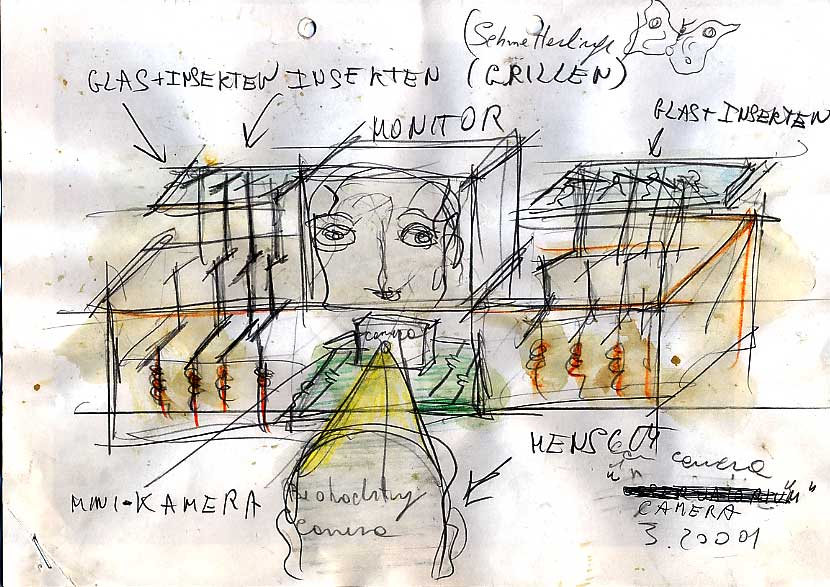 (Schmetterlinge
GLAS+INSEKTEN INSEKTEN (GRILLEN)
GLAS+INSEKTEN
MONITOR
camera
MENSCH
camera
MINI-KAMERA
camera
CAMERA
3.20001